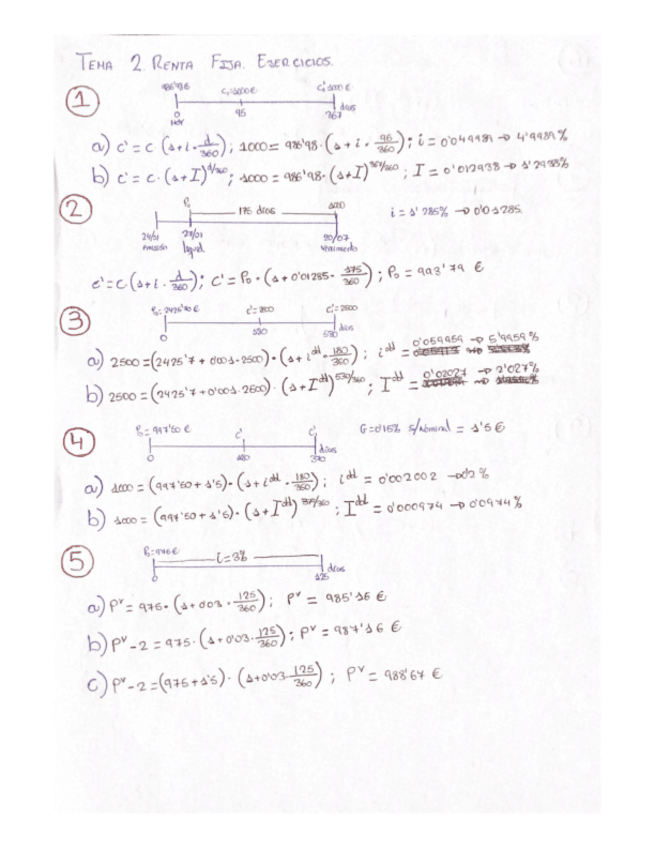 TEMA 2. RENTA FIJA. EJERCICIOS.
1
986'98€ C, 1000€ C', 1000€
0 95 367 días
HOY
a) C' = C (1+i·d/360) ; 1000 = 986'98·(1+i·95/360) ; i = 0'049989 → 4'9989%
b) C' = C·(1+I)^d/360 ; 1000 = 986'98·(1+I)^367/360 ; I = 0'012938 → 1'2938%
2
P₀ 175 días i = 1'285% → 0'01285
24/01 27/01 20/07
emisión vencimiento
C' = C (1+i·d/360) ; C' = P₀·(1+0'01285·175/360) ; P₀ = 993'79 €
3
P₀ = 2425'70€ C' = 2500 C' = 2500
0 180 530 días
a) 2500 = (2425'7 + 0'001·2500)·(1+i^dd·180/360) ; i^dd = 0'059959 → 5'9959%
b) 2500 = (2425'7 + 0'001·2500)·(1+I^dd)^530/360 ; I^dd = 0'02027 → 2'027%
4
P₀ = 997'50€ C' C' G = 0'15% s/nominal = 1'5€
0 180 370 días
a) 1000 = (997'50 + 1'5)·(1+i^dd·180/360) ; i^dd = 0'002002 → 0'2%
b) 1000 = (997'50 + 1'5)·(1+I^dd)^370/360 ; I^dd = 0'000974 → 0'0974%
5
P₀ = 975€ i = 3%
0 125 días
a) P^v = 975·(1+0'03·125/360) ; P^v = 985'16 €
b) P^v - 2 = 975·(1+0'03·125/360) ; P^v = 987'16 €
c) P^v - 2 = (975 + 1'5)·(1+0'03·125/360) ; P^v = 988'67 €